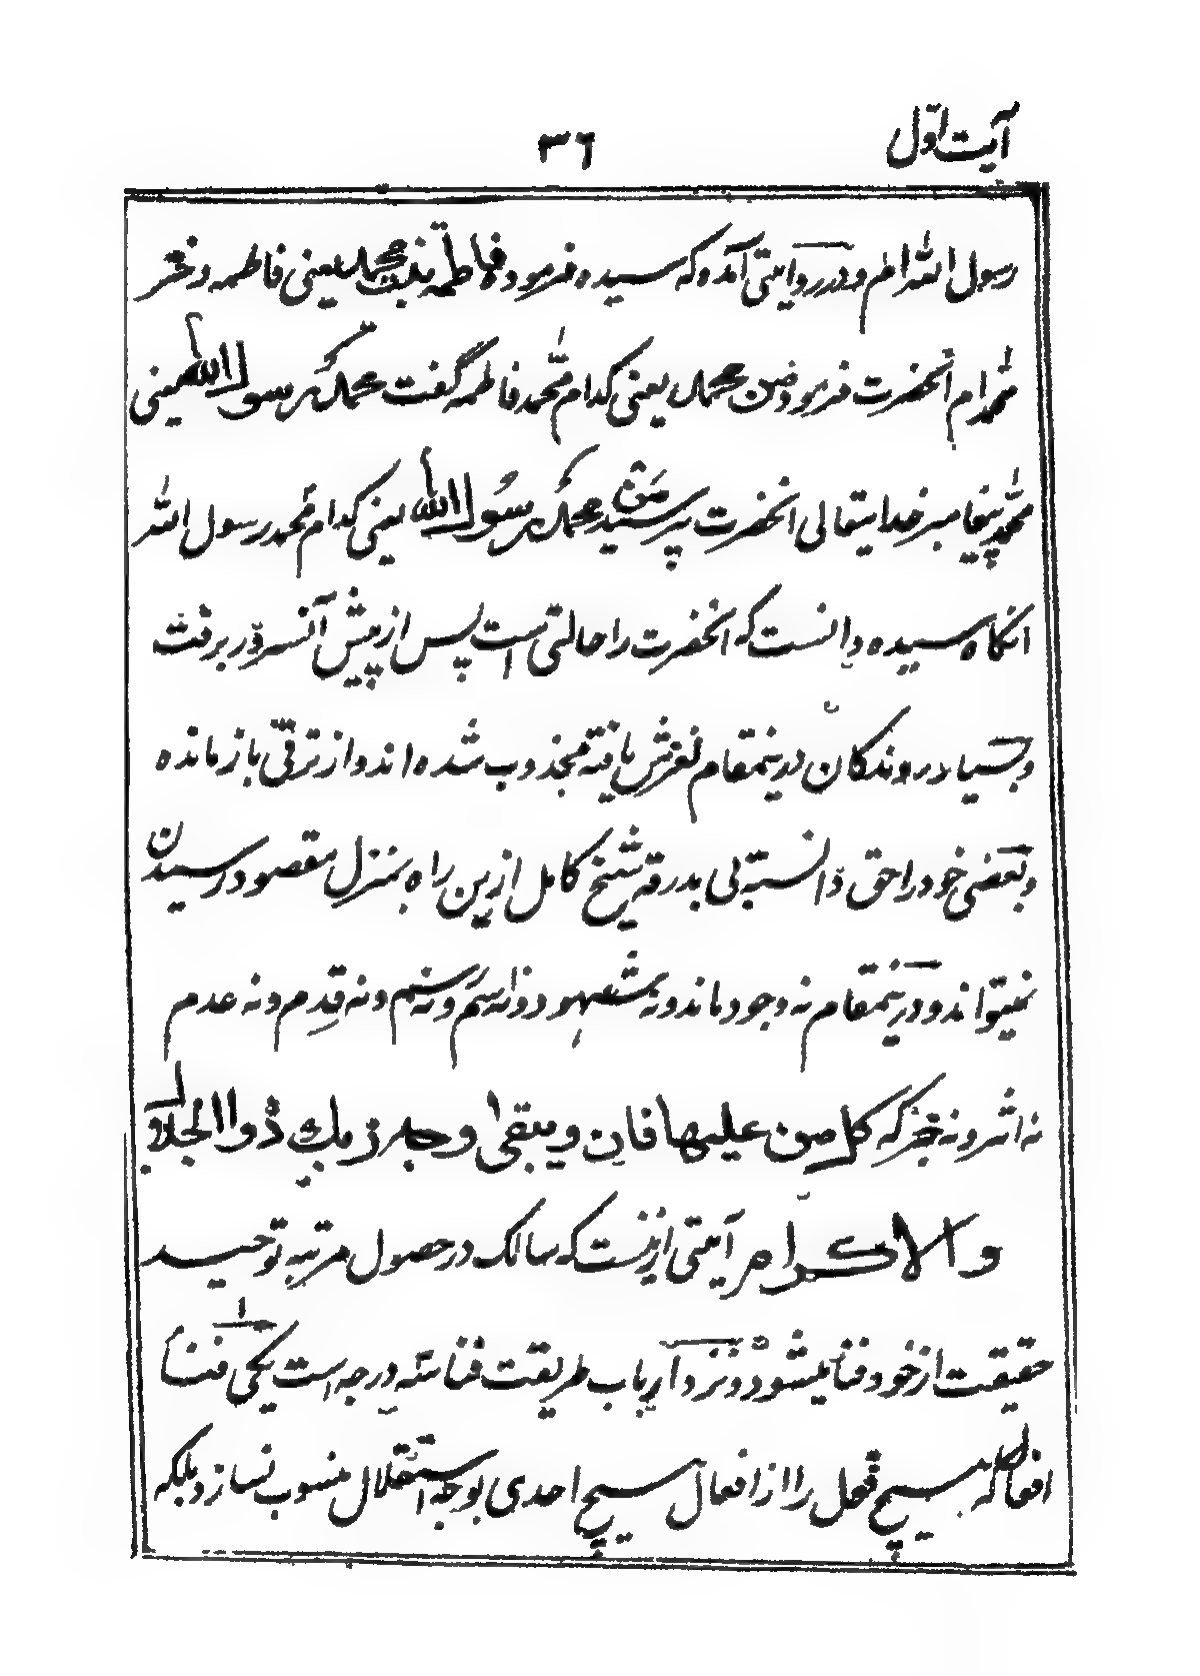 آیت اول
۳۶
رسول الله ام و در روایتی آمده که سیده فرمود فاطمة بنت محمد یعنی فاطمه دختر
محمد ام آنحضرت فرمود من محمد یعنی کدام محمد فاطمه گفت محمد رسول الله یعنی
محمد پیغامبر خدایتعالی آنحضرت پرسید من محمد رسول الله یعنی کدام محمد رسول الله
آنگاه سیده دانست که آنحضرت را حالتی است پس از پیش آنسرور برفت
و بسیار روندگان درینمقام لغزش یافته مجذوب شده اند و از ترقی باز مانده
و بعضی خود را حق دانسته بی بدرقه شیخ کامل ازین راه بمنزل مقصود رسیدن
نمیتواند و درینمقام نه وجود ماند و نه شهود و نه اسم و نه رسم و نه قدم و نه عدم
نه اثر و نه خبر که کل من علیها فان ویبقی وجه ربك ذو الجلال
والاکرام آیتی ازینست که سالک در حصول مرتبه توحید
حقیقت از خود فنا میشود و نزد ارباب طریقت فنا سه درجه است یکی فنا
افعال که هیچ فعل را از افعال هیچ احدی بوجه استقلال منسوب نسازد بلکه